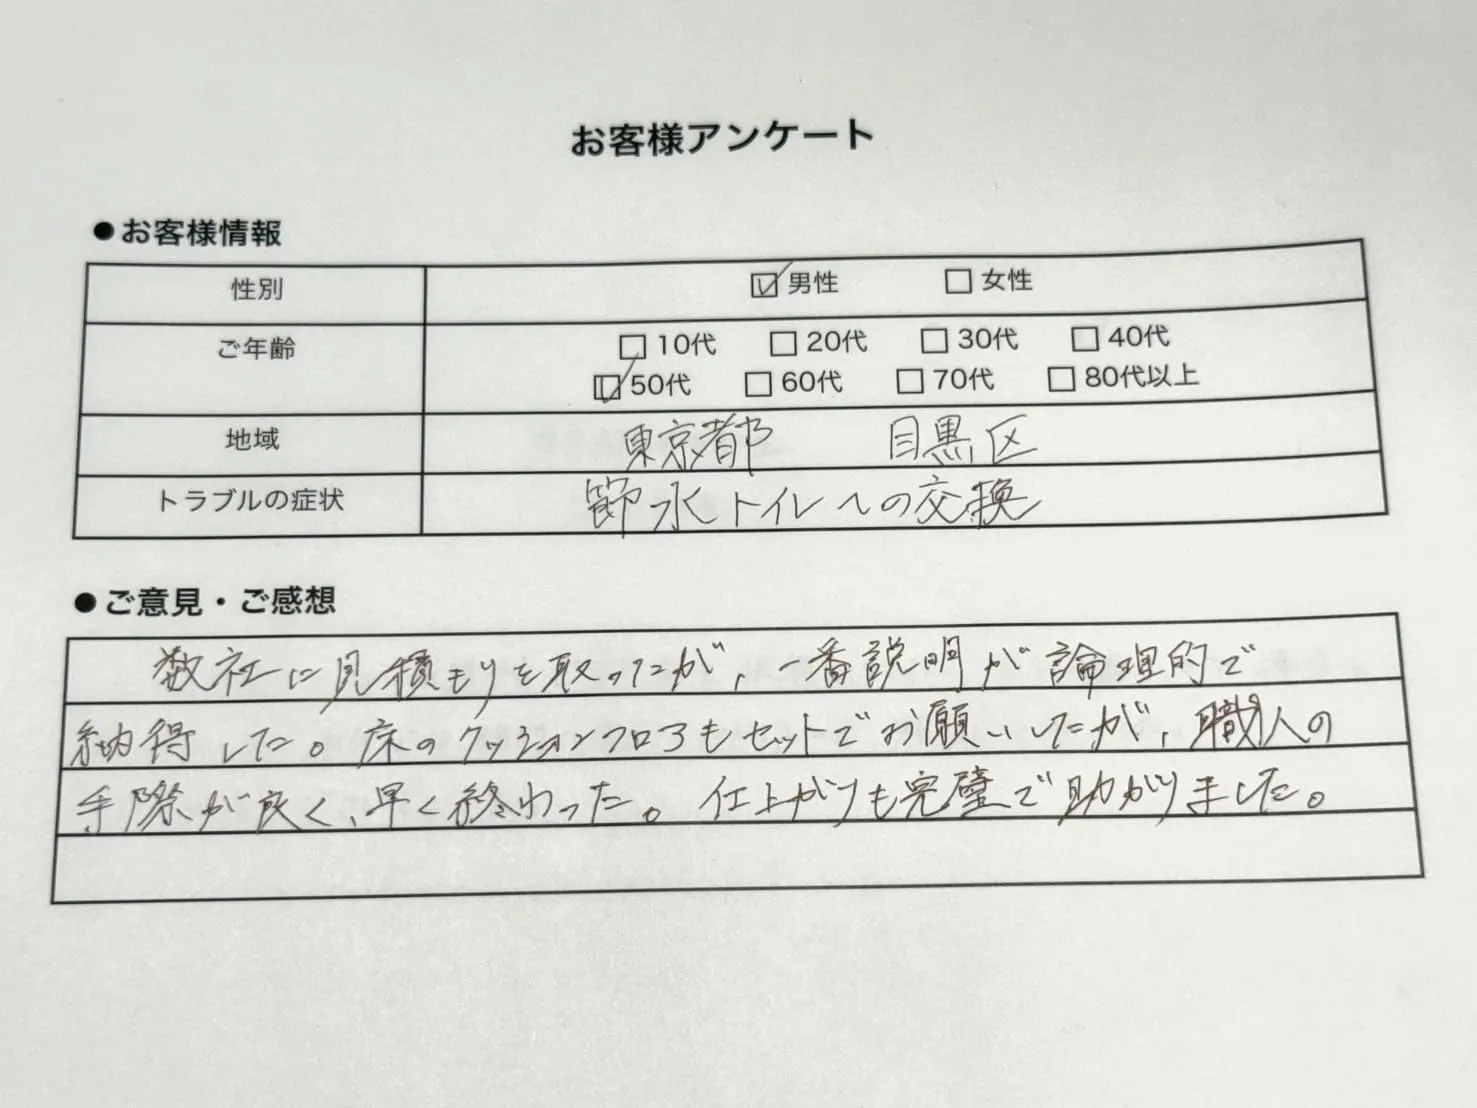 お客様アンケート
●お客様情報
性別 ☑男性 □女性
ご年齢 □10代 □20代 □30代 □40代
☑50代 □60代 □70代 □80代以上
地域 東京都 目黒区
トラブルの症状 節水トイレへの交換
●ご意見・ご感想
数社に見積もりを取ったが、一番説明が論理的で
納得した。床のクッションフロアもセットでお願いしたが、職人の
手際が良く、早く終わった。仕上がりも完璧で助かりました。